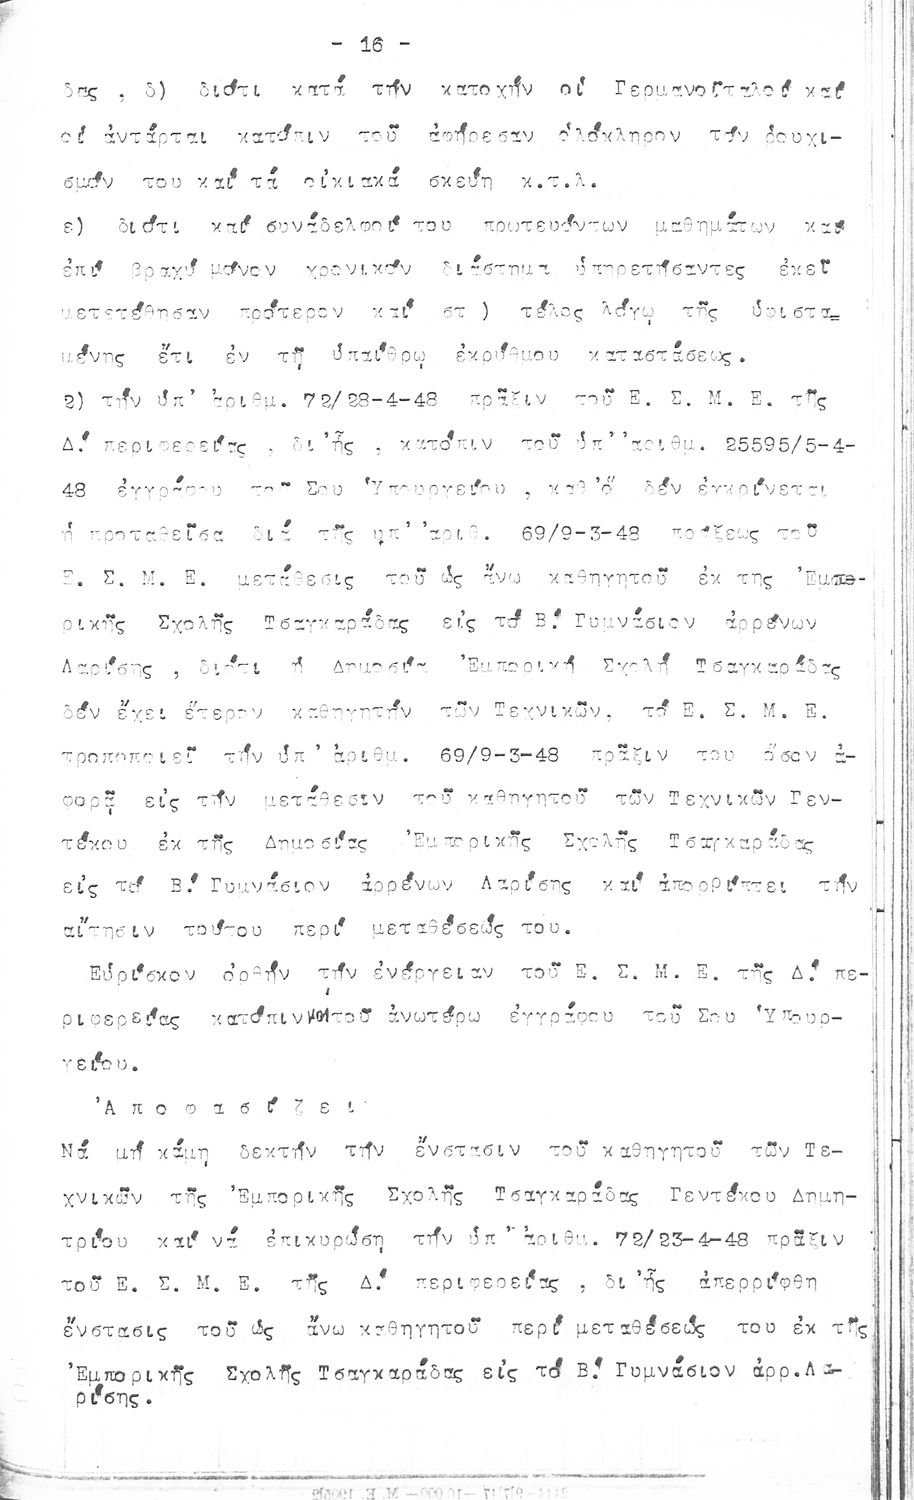 - 16 -
δας , δ) διότι κατά τήν κατοχήν οἱ Γερμανοϊταλοί καί
οἱ ἀντάρται κατόπιν τοῦ ἀφήρεσαν ὁλόκληρον τόν ῥουχι-
σμόν του καί τά οἰκιακά σκεύη κ.τ.λ.
ε) διότι καί συνάδελφοί του πρωτευόντων μαθημάτων καί
ἐπί βραχύ μόνον χρονικόν διάστημα ὑπηρετήσαντες ἐκεῖ
μετετέθησαν πρότερον καί στ ) τέλος λόγῳ τῆς ὑφιστα=
μένης ἔτι ἐν τῇ ὑπαίθρῳ ἐκρύθμου καταστάσεως.
2) τήν ὑπ' ἀριθμ. 72/28-4-48 πρᾶξιν τοῦ Ε. Σ. Μ. Ε. τῆς
Δ.' περιφερείας , δι'ἧς , κατόπιν τοῦ ὑπ''αριθμ. 25595/5-4-
48 ἐγγράφου τοῦ Σου Ὑπουργείου , καθ'ὅ δέν ἐγκρίνεται
ἡ προταθεῖσα διά τῆς ὑπ''ἀριθ. 69/9-3-48 πράξεως τοῦ
Ε. Σ. Μ. Ε. μετάθεσις τοῦ ὡς ἄνω καθηγητοῦ ἐκ της Ἐμπο-
ρικῆς Σχολῆς Τσαγκαράδας εἰς τό Β.' Γυμνάσιον ἀρρένων
Λαρίσης , διότι ἡ Δημοσία Ἐμπορική Σχολή Τσαγκαράδας
δέν ἔχει ἕτερον καθηγητήν τῶν Τεχνικῶν, τό Ε. Σ. Μ. Ε.
τροποποιεῖ τήν ὑπ' ἀριθμ. 69/9-3-48 πρᾶξιν του ὅσον ἀ-
φορᾷ εἰς τήν μετάθεσιν τοῦ καθηγητοῦ τῶν Τεχνικῶν Γεν-
τέκου ἐκ τῆς Δημοσίας Ἐμπορικῆς Σχολῆς Τσαγκαράδας
εἰς τό Β.' Γυμνάσιον ἀρρένων Λαρίσης καί ἀπορρίπτει τήν
αἴτησιν τούτου περί μεταθέσεώς του.
Εὑρίσκον ὀρθήν τήν ἐνέργειαν τοῦ Ε. Σ. Μ. Ε. τῆς Δ.' πε-
ριφερείας κατόπιν τοῦ ἀνωτέρω ἐγγράφου τοῦ Σου Ὑπουρ-
γείου.
Ἀ π ο φ α σ ί ζ ε ι
Νά μή κάμῃ δεκτήν τήν ἔνστασιν τοῦ καθηγητοῦ τῶν Τε-
χνικῶν τῆς Ἐμπορικῆς Σχολῆς Τσαγκαράδας Γεντέκου Δημη-
τρίου καί νά ἐπικυρώσῃ τήν ὑπ' ἀριθμ. 72/23-4-48 πρᾶξιν
τοῦ Ε. Σ. Μ. Ε. τῆς Δ.' περιφερείας , δι'ἧς ἀπερρίφθη
ἔνστασις τοῦ ὡς ἄνω καθηγητοῦ περί μεταθέσεώς του ἐκ τῆς
Ἐμπορικῆς Σχολῆς Τσαγκαράδας εἰς τό Β.' Γυμνάσιον ἀρρ.Λα-
ρίσης.